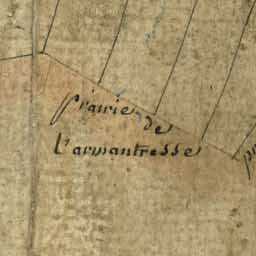 prairie de
L'armantresse